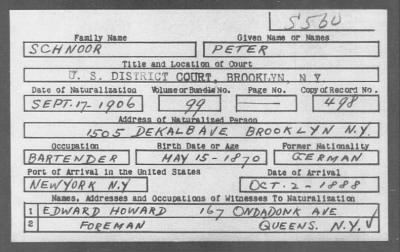 S560
Family Name Given Name or Names
SCHNOOR PETER
Title and Location of Court
U. S. DISTRICT COURT, BROOKLYN, N.Y.
Date of Naturalization Volume or Bundle No. Page No. Copy of Record No.
SEPT.-17-1906 99 — 498
Address of Naturalized Person
1505 DEKALB AVE BROOKLYN N.Y.
Occupation Birth Date or Age Former Nationality
BARTENDER MAY 15-1870 GERMAN
Port of Arrival in the United States Date of Arrival
NEW YORK N.Y OCT.-2-1888
Names, Addresses and Occupations of Witnesses To Naturalization
1 EDWARD HOWARD 167 ONDADONK AVE
2 FOREMAN QUEENS. N.Y.